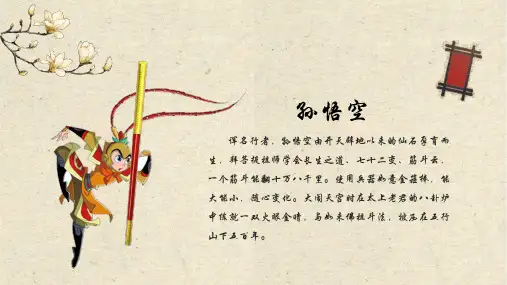 孙悟空
诨名行者，孙悟空由开天辟地以来的仙石孕育而
生，拜菩提祖师学会长生之道、七十二变、筋斗云，
一个筋斗能翻十万八千里。使用兵器如意金箍棒，能
大能小，随心变化。大闹天宫时在太上老君的八卦炉
中炼就一双火眼金睛，与如来佛祖斗法，被压在五行
山下五百年。